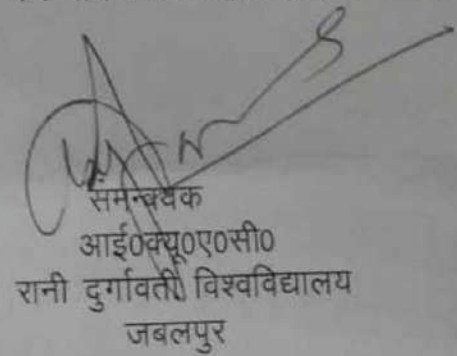 समन्वयक
आई0क्यू0ए0सी0
रानी दुर्गावती विश्वविद्यालय
जबलपुर